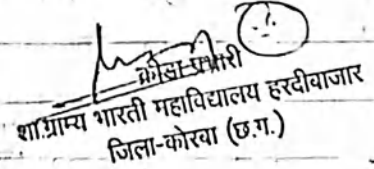 क्रीड़ा प्रभारी
शा.ग्राम्य भारती महाविद्यालय हरदीबाजार
जिला-कोरबा (छ.ग.)